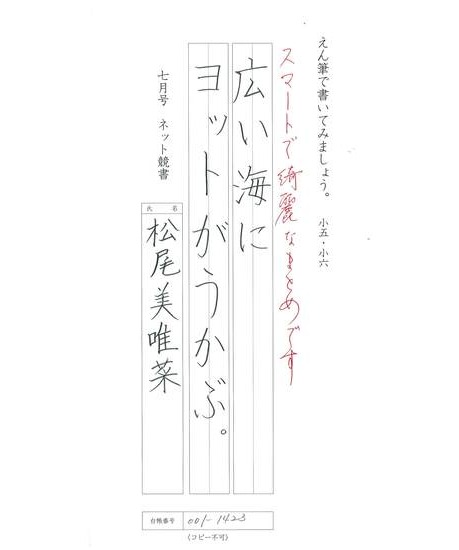 えん筆で書いてみましょう。 小五・小六
スマートで綺麗なまとめです
広い海に
ヨットがうかぶ。
七月号 ネット競書
氏名
松尾美唯菜
台帳番号 001-1423
(コピー不可)